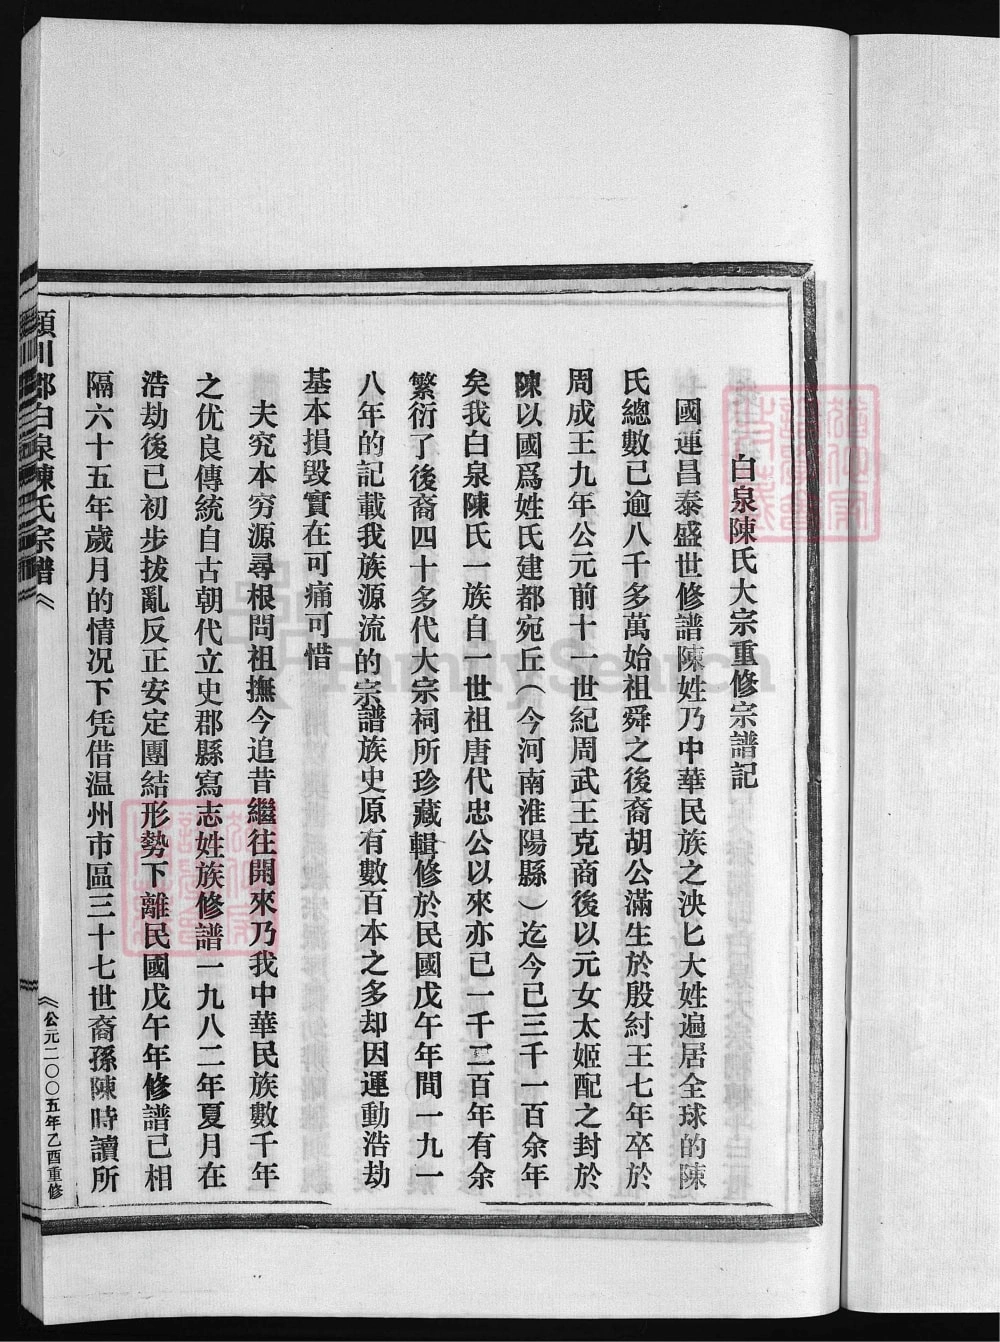 白泉陳氏大宗重修宗譜記
國運昌泰盛世修譜陳姓乃中華民族之泱匕大姓遍居全球的陳
氏總數已逾八千多萬始祖舜之後裔胡公滿生於殷紂王七年卒於
周成王九年公元前十一世紀周武王克商後以元女太姬配之封於
陳以國爲姓氏建都宛丘(今河南淮陽縣)迄今已三千一百余年
矣我白泉陳氏一族自一世祖唐代忠公以來亦已一千二百年有余
繁衍了後裔四十多代大宗祠所珍藏輯修於民國戊午年間一九一
八年的記載我族源流的宗譜族史原有數百本之多却因運動浩劫
基本損毀實在可痛可惜
夫究本穷源尋根問祖撫今追昔繼往開來乃我中華民族數千年
之优良傳統自古朝代立史郡縣寫志姓族修譜一九八二年夏月在
浩劫後已初步拔亂反正安定團結形勢下離民國戊午年修譜已相
隔六十五年歲月的情况下凭借温州市區三十七世裔孫陳時讀所
潁川郡白泉陳氏宗譜
《公元二〇〇五年乙酉重修
FamilySearch